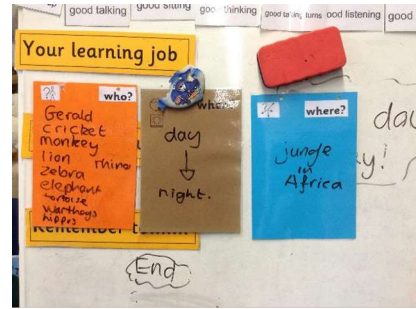 good talking
good sitting
good thinking
good taking turns
good listening
good
Your learning job
who?
Gerald
cricket
monkey
lion rhino
zebra
elephant
tortoise
warthogs
hippos
when
day
night.
where?
jungle
in
Africa
day
y!
Remember
End